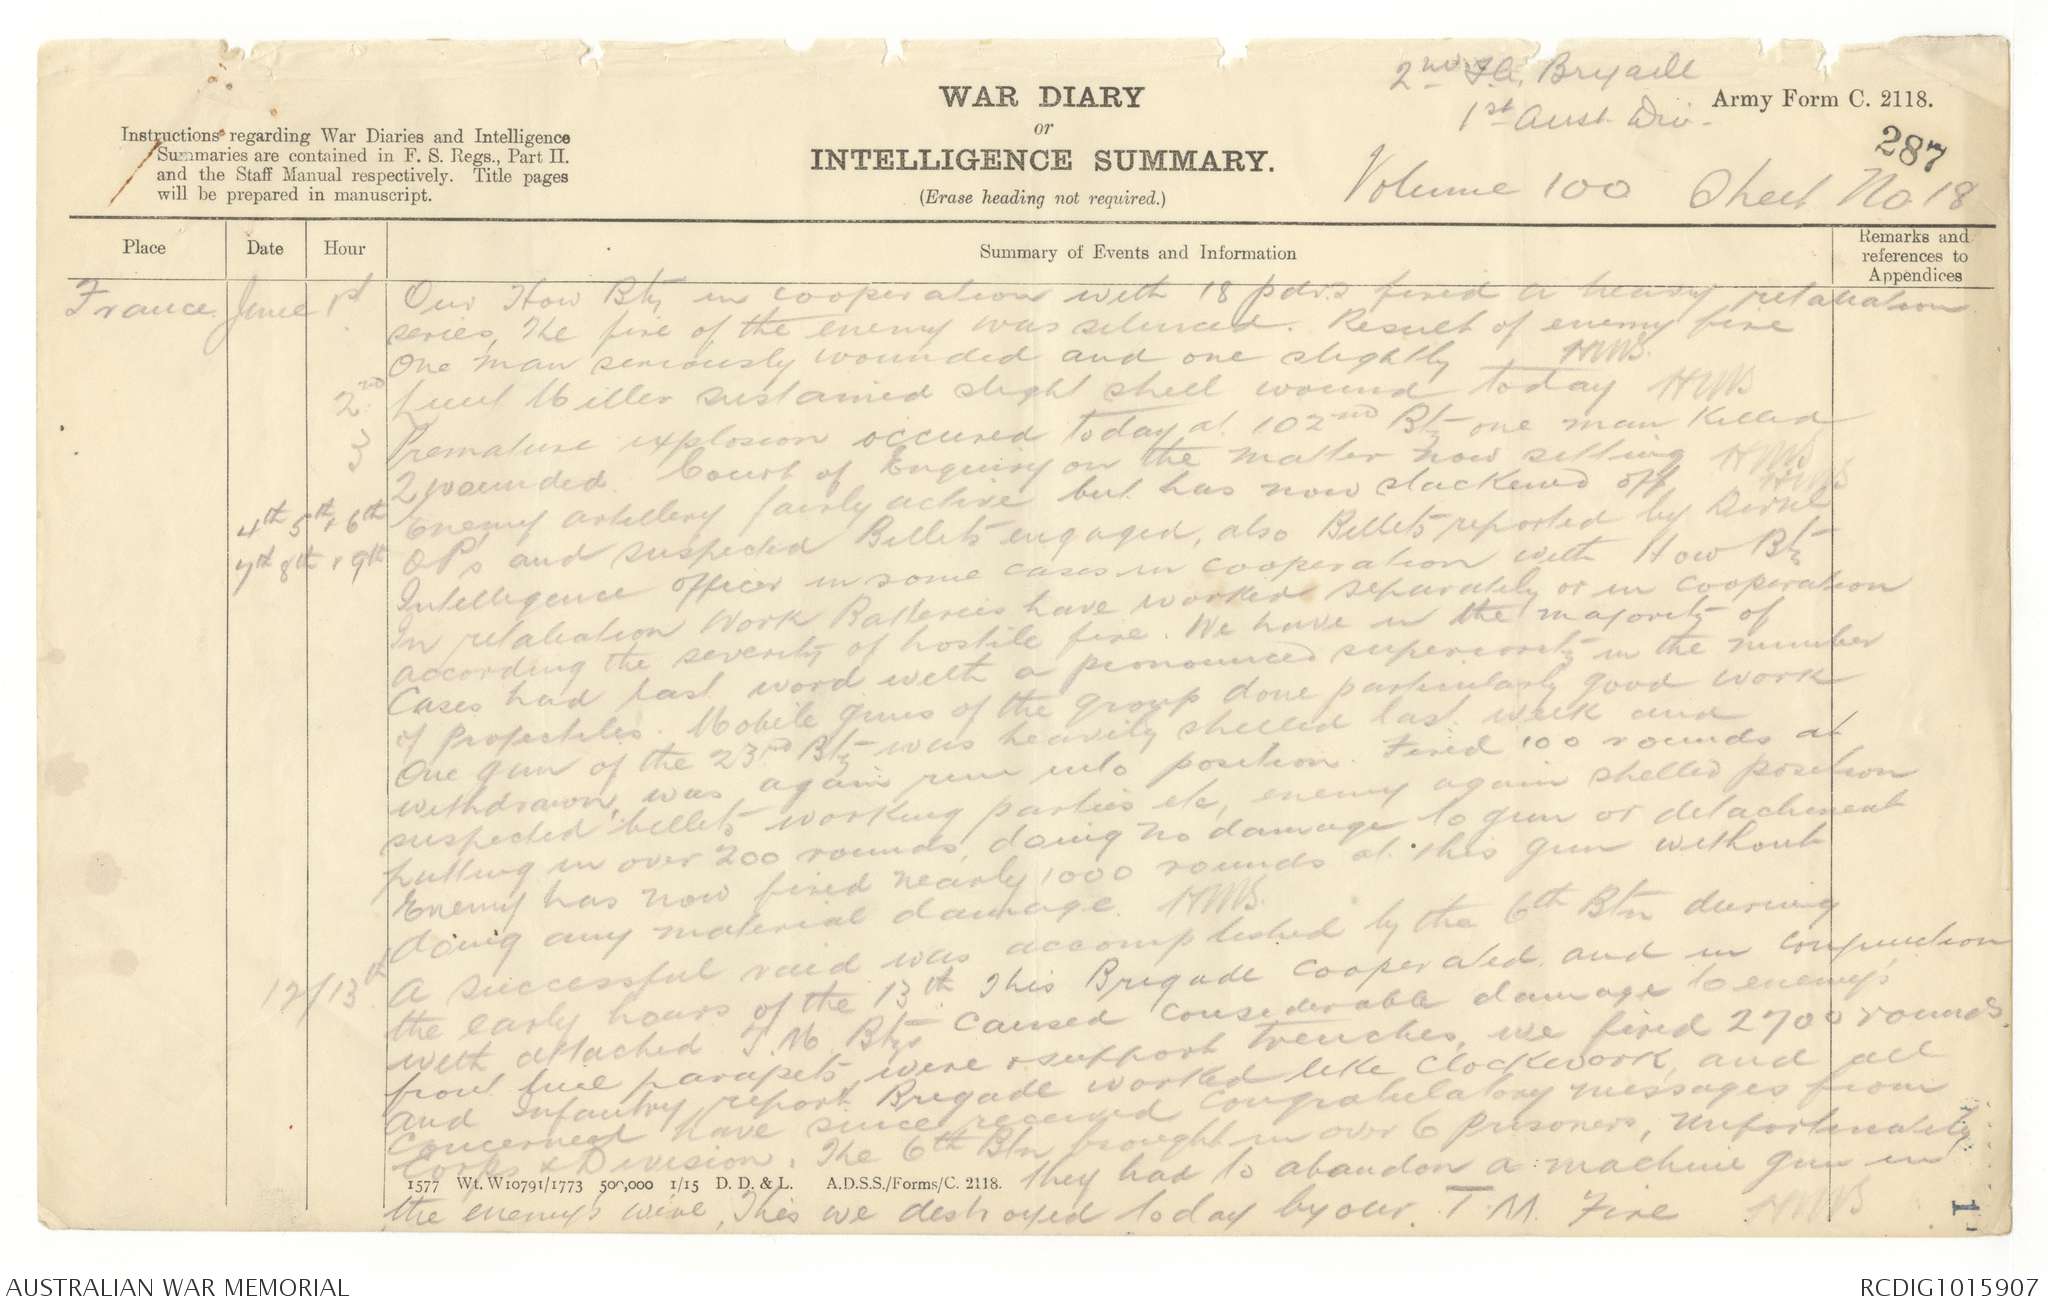 2nd F.A. Brigade
1st Aust. Div.
Army Form C. 2118.
WAR DIARY
or
INTELLIGENCE SUMMARY.
(Erase heading not required.)
Instructions regarding War Diaries and Intelligence
Summaries are contained in F. S. Regs., Part II.
and the Staff Manual respectively. Title pages
will be prepared in manuscript.
287
Volume 100 Sheet No. 18
Place Date Hour Summary of Events and Information Remarks and references to Appendices
France June 1st Our How Bty in cooperation with 18 pdrs fired a heavy retaliation
series, the fire of the enemy was silenced. Result of enemy fire
One man seriously wounded and one slightly
2nd Lieut Miller sustained slight shell wound today
3 Premature explosion occured today at 102nd Bty one man killed
2 wounded. Court of Enquiry on the matter now sitting
4th 5th & 6th Enemy artillery fairly active but has now slackened off
7th 8th & 9th OP's and suspected Billets engaged, also Billets reported by
Intelligence officer in some cases in cooperation with How Bty
In retaliation work Batteries have worked separately or in cooperation
according the severity of hostile fire. We have in the majority of
Cases had last word with a pronounced superiority in the number
of projectiles. Mobile guns of the group done particularly good work
One gun of the 23rd Bty was heavily shelled last week and
withdrawn, was again run into position. Fired 100 rounds at
suspected billets working parties etc, enemy again shelled position
putting in over 200 rounds, doing no damage to gun or detachment
Enemy has now fired nearly 1000 rounds at this gun without
doing any material damage.
12/13th A successful raid was accomplished by the 6th Btn during
the early hours of the 13th This Brigade cooperated and in conjunction
with attached T.M. Btys caused considerable damage to enemy's
front line parapets, wire & support trenches, we fired 2700 rounds.
and Infantry report Brigade worked like clockwork, and all
concerned have since received congratulatory messages from
Corps & Division. The 6th Btn brought in over 6 prisoners, unfortunately
they had to abandon a machine gun in
1577 Wt. W10791/1773 500,000 1/15 D. D. & L. A.D.S.S./Forms/C. 2118.
the enemy's wire, This we destroyed today by our T.M. Fire
1
AUSTRALIAN WAR MEMORIAL
RCDIG1015907